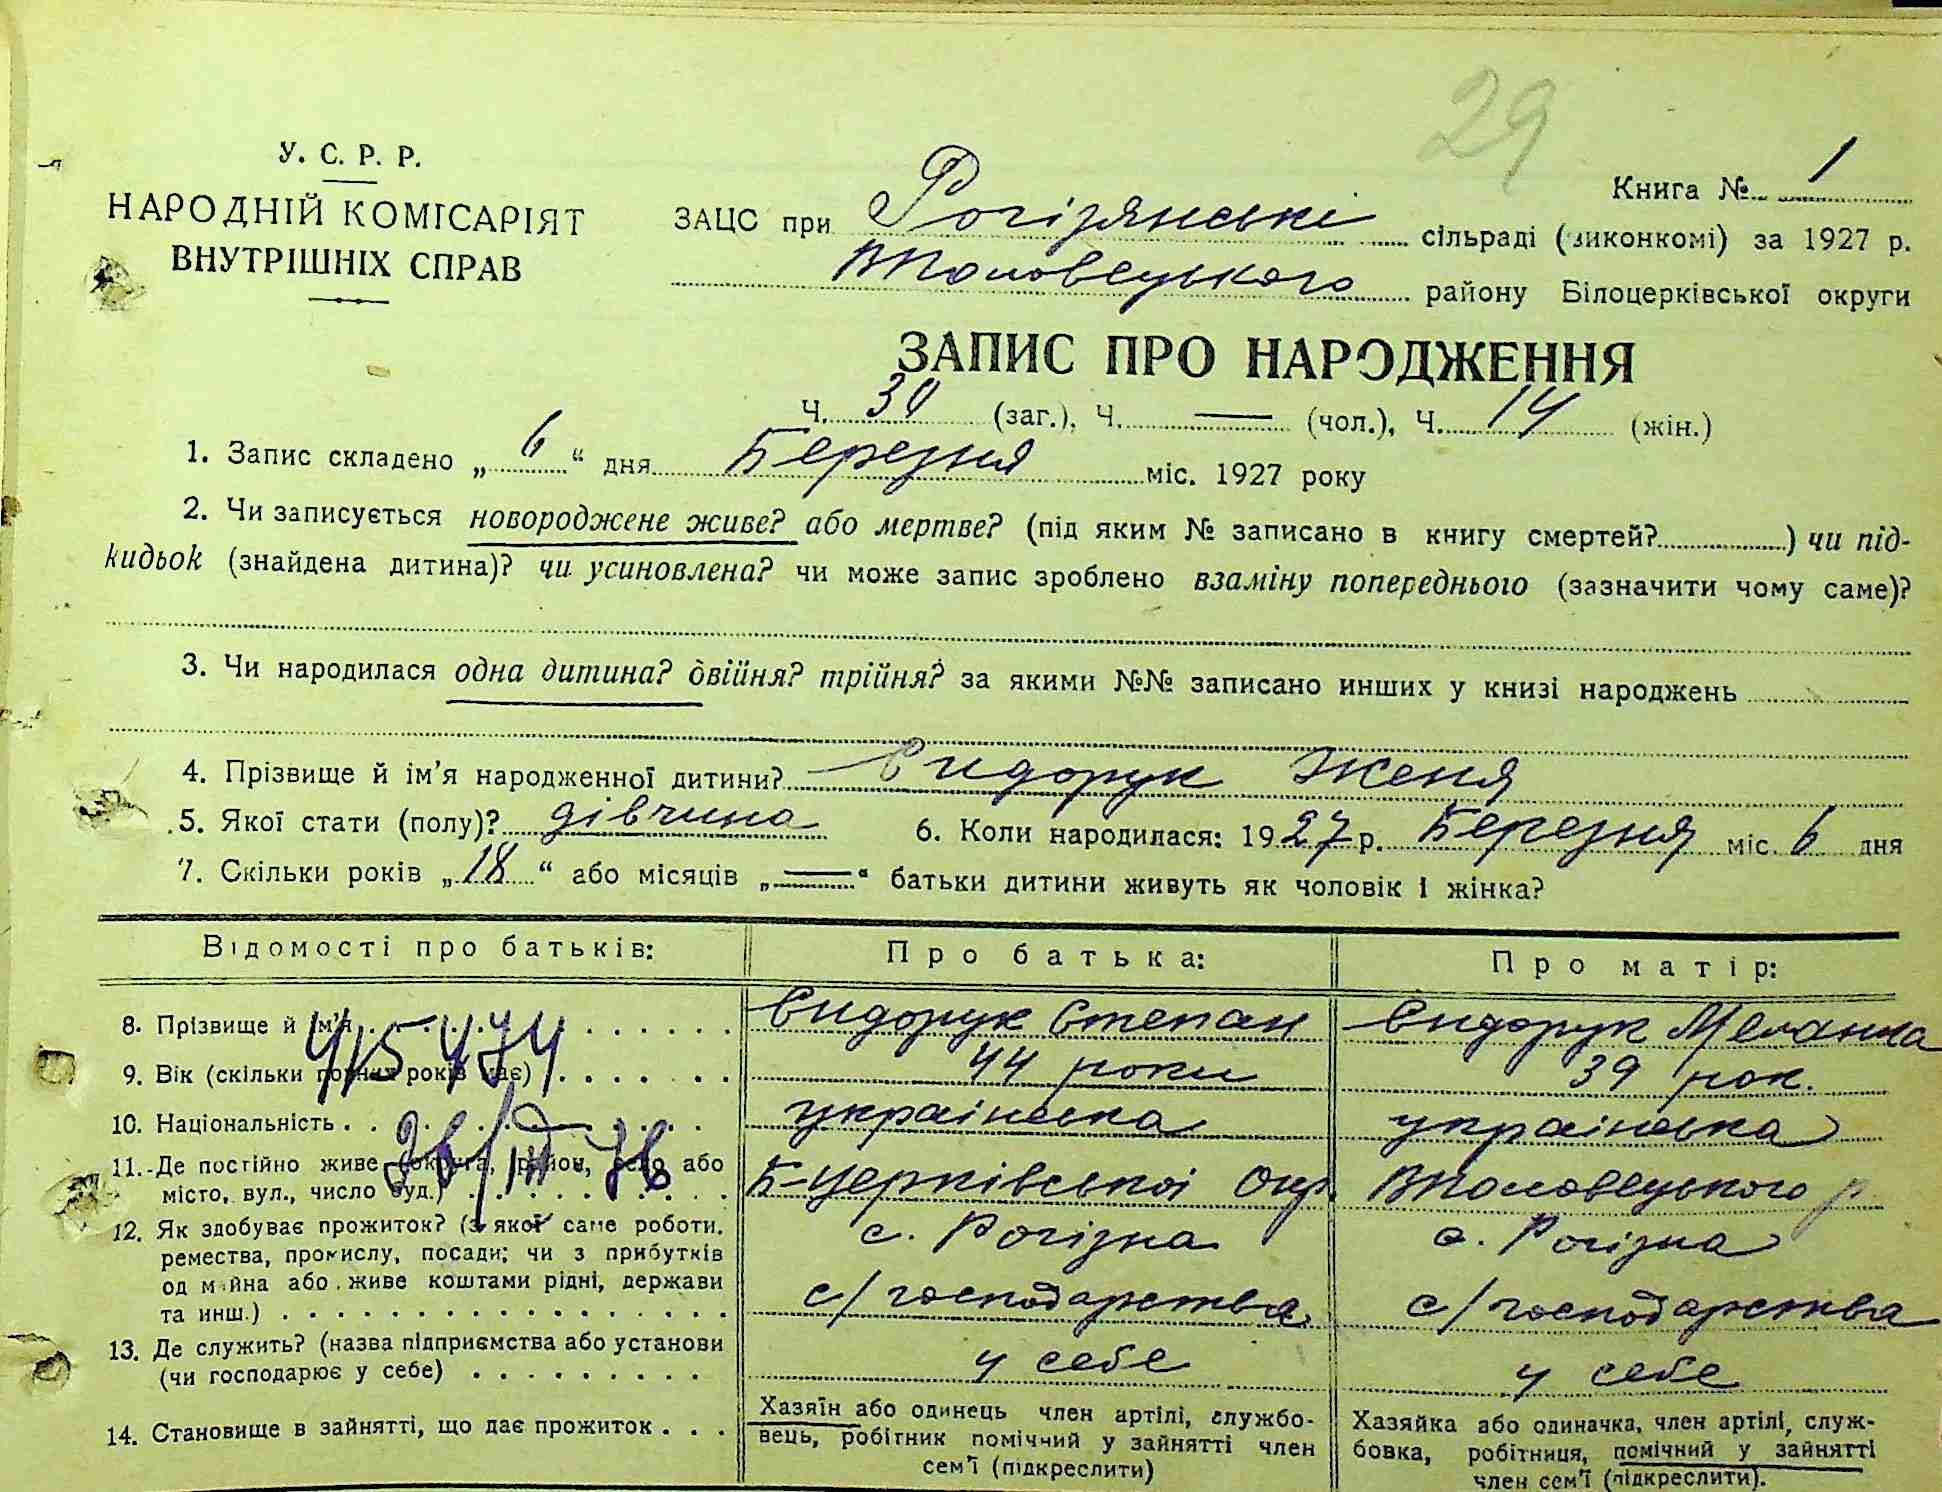 29
У. С. Р. Р.
НАРОДНІЙ КОМІСАРІЯТ
ВНУТРІШНІХ СПРАВ
Книга № 1
ЗАЦС при Рогізянські сільраді (виконкомі) за 1927 р.
ВПоловецького району Білоцерківської округи
ЗАПИС ПРО НАРОДЖЕННЯ
Ч. 30 (заг.), Ч. — (чол.), Ч. 14 (жін.)
1. Запис складено „ 6 “ дня Березня міс. 1927 року
2. Чи записується новороджене живе? або мертве? (під яким № записано в книгу смертей?) чи під-
кидьок (знайдена дитина)? чи усиновлена? чи може запис зроблено взаміну попереднього (зазначити чому саме)?
3. Чи народилася одна дитина? двійня? трійня? за якими №№ записано инших у книзі народжень
4. Прізвище й ім’я народженної дитини? Сидорук Женя
5. Якої стати (полу)? дівчина 6. Коли народилася: 1927 р. Березня міс. 6 дня
7. Скільки років „ 18 “ або місяців „ — “ батьки дитини живуть як чоловік і жінка?
Відомості про батьків: Про батька: Про матір:
8. Прізвище й ім’я Сидорук Степан Сидорук Меланка
9. Вік (скільки повних років має) 44 роки 39 рок.
10. Національність українська українська
11. Де постійно живе (округа, район, село або
місто, вул., число буд.) Б-Церківської Окр. ВПоловецького р
с. Рогізна с. Рогізна
12. Як здобуває прожиток? (з якої саме роботи,
ремества, промислу, посади; чи з прибутків
од майна або живе коштами рідні, держави
та инш.) с/господарства с/господарства
13. Де служить? (назва підприємства або установи
(чи господарює у себе) у себе у себе
14. Становище в зайнятті, що дає прожиток
Хазяїн або одинець член артілі, службо-
вець, робітник помічний у зайнятті член
сем’ї (підкреслити)
Хазяйка або одиначка, член артілі, служ-
бовка, робітниця, помічний у зайнятті
член сем’ї (підкреслити).